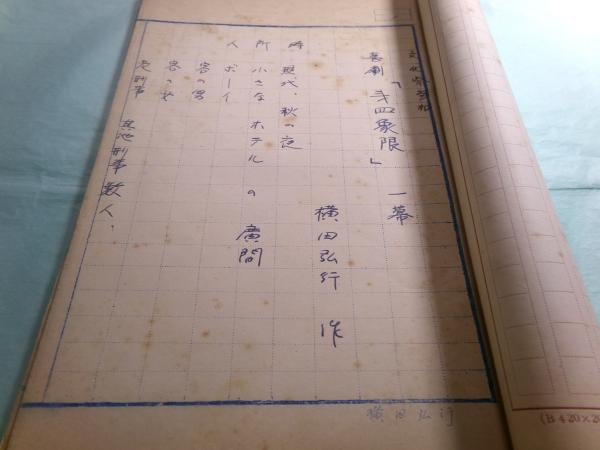 喜劇「第四象限」 一幕
横田弘行 作
時 現代、秋の夜
所 小さなホテルの廣間
人 ボーイ
客の男
客の女
老刑事
其他刑事数人、
横田弘行
(B4 20×20